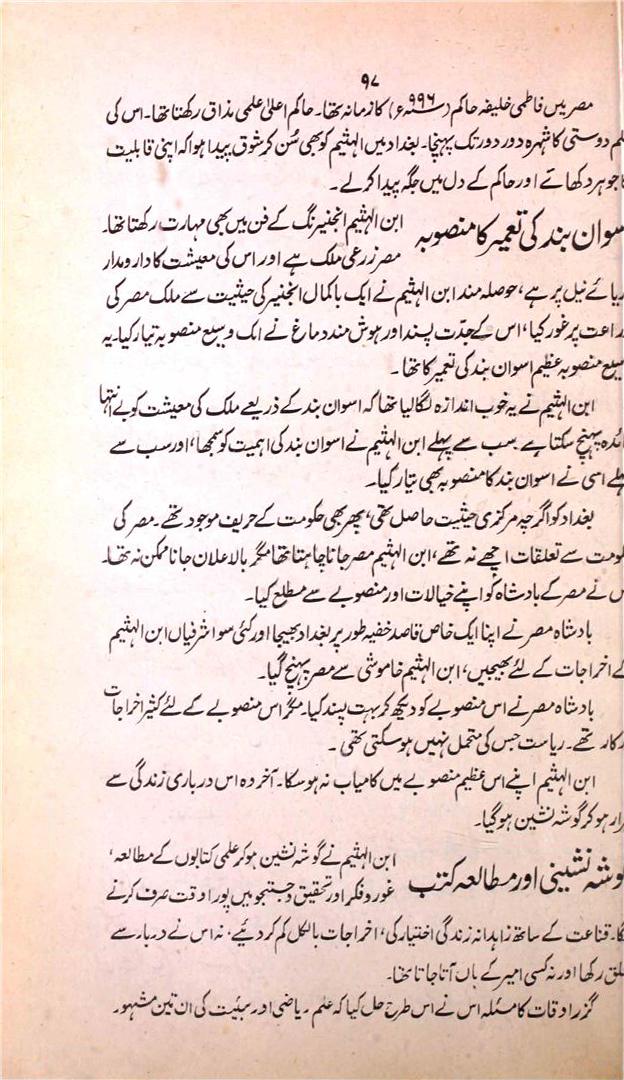 ۹۷
مصر میں فاطمی خلیفہ حاکم (۹۹۶ء) کا زمانہ تھا۔ حاکم اعلیٰ علمی مذاق رکھتا تھا۔ اس کی
دوستی کا شہرہ دور دور تک پہنچا۔ بغداد میں ابن الہثیم کو بھی سُن کر شوق پیدا ہوا کہ اپنی قابلیت
جوہر دکھائے اور حاکم کے دل میں جگہ پیدا کرلے۔
اسوان بند کی تعمیر کا منصوبہ
ابن الہثیم انجنیرنگ کے فن میں بھی مہارت رکھتا تھا۔
مصر زرعی ملک ہے اور اس کی معیشت کا دارومدار
دریائے نیل پر ہے، حوصلہ مند ابن الہثیم نے ایک باکمال انجنیر کی حیثیت سے ملک مصر کی
زراعت پر غور کیا، اس کے جدّت پسند اور ہوش مند دماغ نے ایک وسیع منصوبہ تیار کیا۔ یہ
وسیع منصوبہ عظیم اسوان بند کی تعمیر کا تھا۔
ابن الہثیم نے یہ خوب اندازہ لگا لیا تھا کہ اسوان بند کے ذریعے ملک کی معیشت کو بے انتہا
فائدہ پہنچ سکتا ہے۔ سب سے پہلے ابن الہثیم نے اسوان بند کی اہمیت کو سمجھا، اور سب سے
پہلے اسی نے اسوان بند کا منصوبہ بھی تیار کیا۔
بغداد کو اگرچہ مرکزی حیثیت حاصل تھی، پھر بھی حکومت کے حریف موجود تھے۔ مصر کی
حکومت سے تعلقات اچھے نہ تھے، ابن الہثیم مصر جانا چاہتا تھا مگر بالاعلان جانا ممکن نہ تھا۔
اس نے مصر کے بادشاہ کو اپنے خیالات اور منصوبے سے مطلع کیا۔
بادشاہ مصر نے اپنا ایک خاص قاصد خفیہ طور پر بغداد بھیجا اور کئی سو اشرفیاں ابن الہثیم
کے اخراجات کے لئے بھیجیں، ابن الہثیم خاموشی سے مصر پہنچ گیا۔
بادشاہ مصر نے اس منصوبے کو دیکھ کر بہت پسند کیا۔ مگر اس منصوبے کے لئے کثیر اخراجات
درکار تھے۔ ریاست جس کی متحمل نہیں ہو سکتی تھی۔
ابن الہثیم اپنے اس عظیم منصوبے میں کامیاب نہ ہو سکا۔ آخر وہ اس درباری زندگی سے
ہو کر گوشہ نشین ہو گیا۔
گوشہ نشینی اور مطالعہ کتب
ابن الہثیم نے گوشہ نشین ہو کر علمی کتابوں کے مطالعہ،
غور و فکر اور تحقیق و جستجو میں پورا وقت صرف کرنے
لگا۔ قناعت کے ساتھ زاہدانہ زندگی اختیار کی، اخراجات بالکل کم کر دیئے، نہ اس نے دربار سے
تعلق رکھا اور نہ کسی امیر کے ہاں آتا جاتا تھا۔
گزر اوقات کا مسئلہ اس نے اس طرح حل کیا کہ علم ریاضی اور ہیئت کی ان تین مشہور۔